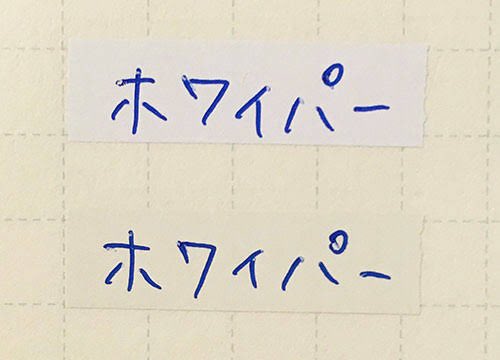 ホワイパー
ホワイパー